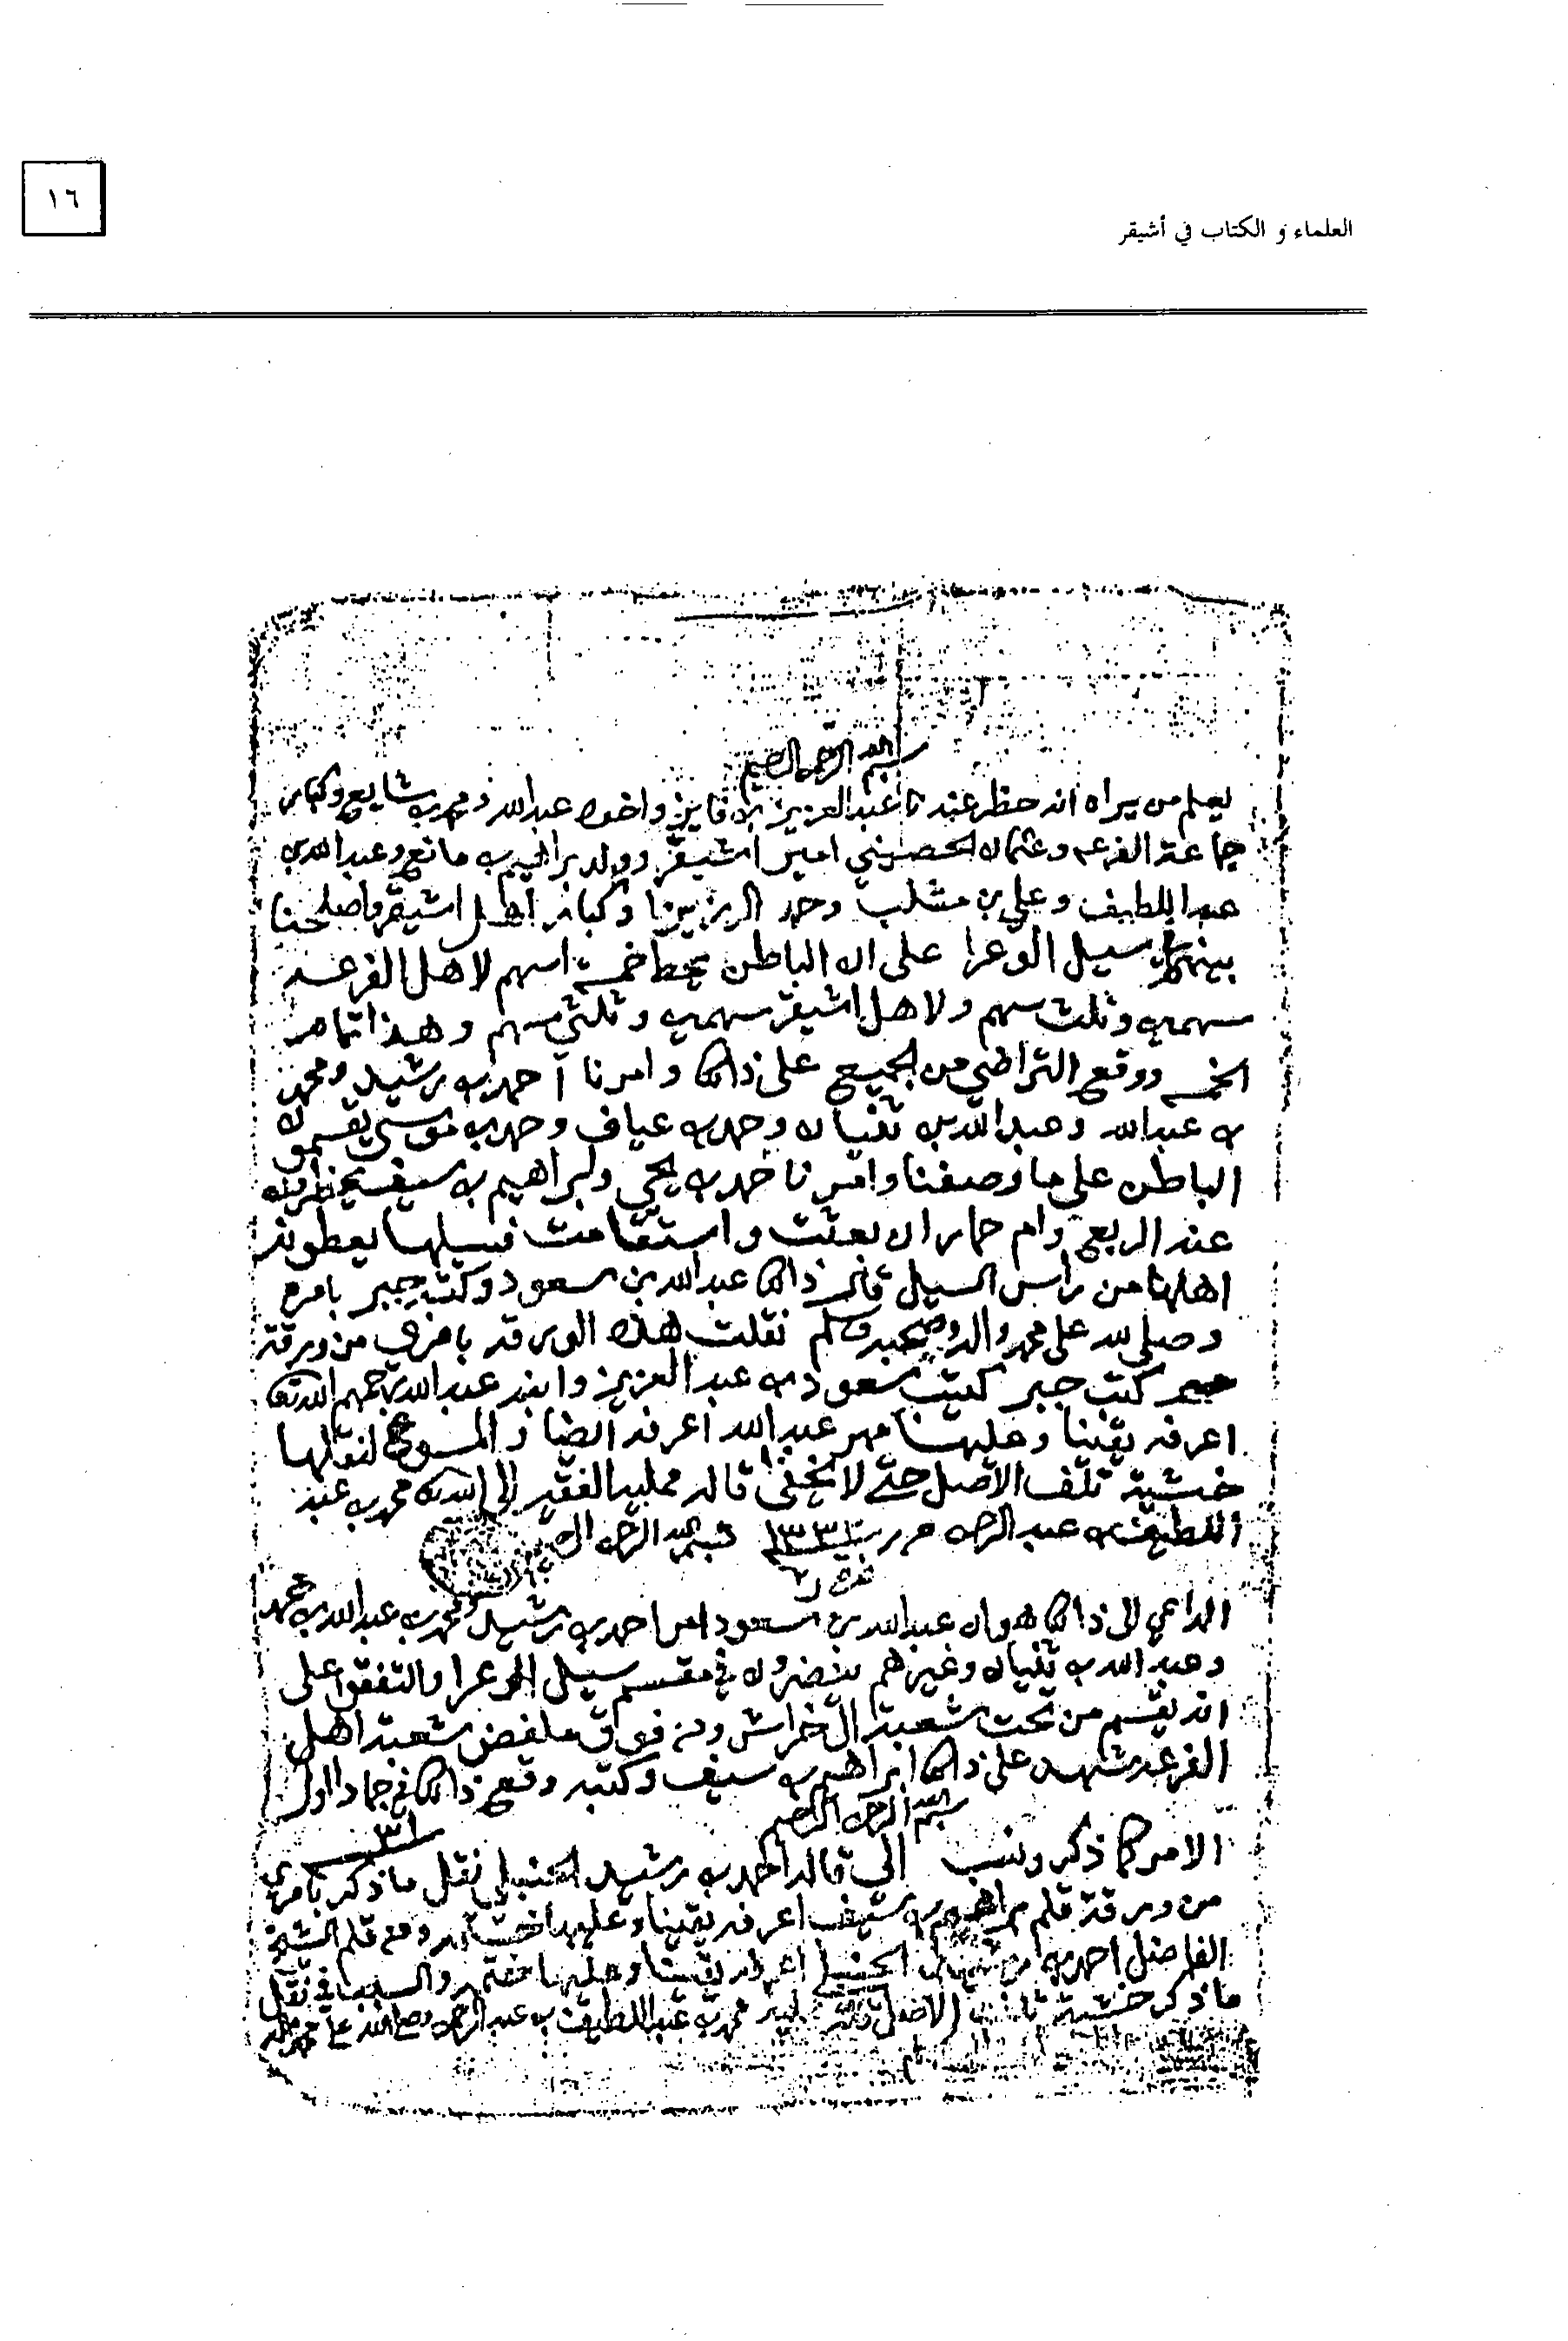 ١٦
العلماء و الكتاب في أشيقر
بسم الله الرحمن الرحيم
يعلم من يراه انه حظر عندنا عبد العزيز بن فايز واخوه عبدالله ومحمد بن شايع وكبار
جماعة الفرعه وعثمان الحصيني امير اشيقر وولد براهيم بن مانع وعبدالله بن
عبد اللطيف وعلي بن مشلب وحمد الرزيزا وكبار اهل اشيقر واصلحنا
بينهم سيل الوعرا على ان الباطن يحط خمسة اسهم لاهل الفرعه
سهمين وثلث سهم ولاهل اشيقر سهمين وثلثي سهم وهذا تمام
الخمسه ووقع التراظي من الجميع على ذالك وامرنا احمد بن رشيد ومحمد
بن عبدالله وعبدالله بن ثنيان وحمد بن عياف وحمد بن موسى يقسمون
الباطن على ما وصفنا وامرنا حمد بن يحي ولبراهيم بن سيف
عند الربع وام حمار ان بعثت واستقامت فسيلها يعطونه
اهلها من راس السيل قال ذالك عبدالله بن سعود وكتبه جبر بامره
وصلى لله على محمد واله وصحبه وسلم نقلت هذه الورقه بامري من ورقة
كتب جبر كتبت سعود بن عبد العزيز وابنه عبدالله رحمهم الله
اعرفه يقينا وعليها مهر عبدالله اعرفه ايضا والمسوغ لنقلها
خشية تلف الاصل حتى لا يخفى قاله ممليه الفقير الى الله محمد بن عبد
اللطيف بن عبد الرحمن حرر
الداعي الى ذالك هو ان عبدالله بن سعود امر احمد بن رشيد ومحمد بن عبدالله بن حمد
وعبدالله بن ثنيان وغيرهم ينضرون في مقسم سيل الوعرا والتفقو على
انه يقسم من تحت شعبة الخراش ومن فوق ملفض شعبة اهل
الفرعه شهد على ذالك ابراهيم بن سيف وكتبه وقع ذالك في جماد اول
بسم الله الرحمن الرحيم
الامر كما ذكر ونسب الي قاله احمد بن رشيد الحنبلي نقل ما ذكر بامري
من ورقة قلم براهيم بن سيف اعرفه يقينا وعليها ختمه ومع قلم الشيخ
الفاضل احمد بن رشيد الحنبلي اعرفه يقينا وعليها ختمه والسبب في نقل
ما ذكر خشية تلف الاصل محمد بن عبداللطيف بن عبدالرحمن وصلى الله على محمد واله